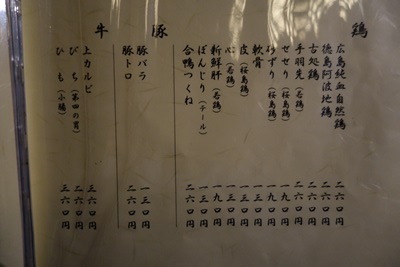 鶏
広島純血自然鶏 二六〇円
徳島阿波地鶏 二六〇円
古処鶏 二六〇円
手羽先（若鶏） 二六〇円
せせり（桜島鶏） 一九〇円
砂ずり（桜島鶏） 一九〇円
軟骨 一九〇円
皮（桜島鶏） 一三〇円
心（若鶏） 一三〇円
新鮮肝（若鶏） 一九〇円
ぼんじり（テール） 一三〇円
合鴨つくね 二六〇円
豚
豚バラ 一三〇円
豚トロ 二六〇円
牛
上カルビ 三六〇円
びち（第四の胃） 三六〇円
ひも（小腸） 三六〇円